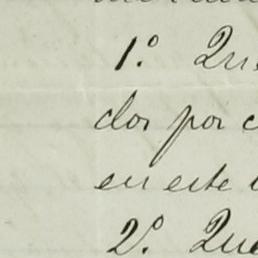 1.º Que
dos por
en este
2.º Que